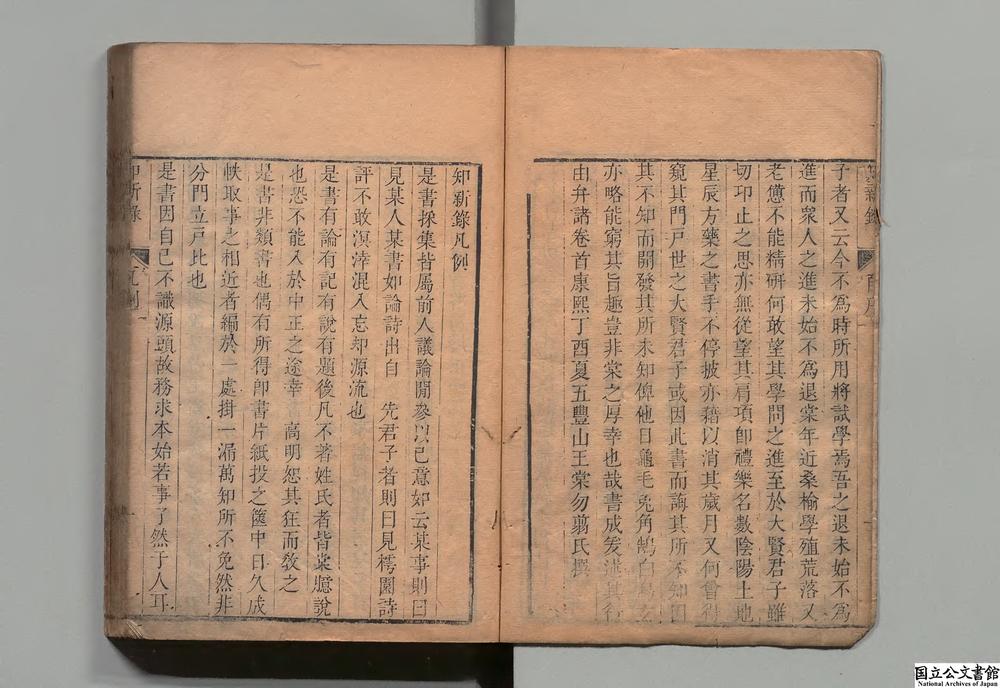 子者又云今不為時所用將試學焉吾之退未始不為
進而衆人之進未始不為退棠年近桑榆學殖荒落又
老憊不能精硏何敢望其學問之進至於大賢君子雖
切卬止之思亦無從望其肩項卽禮樂名數陰陽土地
星辰方藥之書手不停披亦藉以消其歲月又何曾得
窺其門戸世之大賢君子或因此書而誨其所不知因
其不知而開發其所未知俾他日龜毛兔角鵠白烏玄
亦略能窮其旨趣豈非棠之厚幸也哉書成爰述其行
由弁諸卷首康熙丁酉夏五豐山王棠勿翦氏撰
知新錄凡例
是書採集皆屬前人議論閒參以己意如云某事則曰
見某人某書如論詩出自 先君子者則曰見樗園詩
評不敢溟涬混入忘却源流也
是書有論有記有說有題後凡不著姓氏者皆棠臆說
也恐不能入於中正之途幸 高明恕其狂而敎之
是書非類書也偶有所得卽書片紙投之篋中日久成
帙取事之相近者編於一處掛一漏萬知所不免然非
分門立戸比也
是書因自己不識源頭故務求本始若事了然于人耳
知新錄 凡例 一
国立公文書館
National Archives of Japan